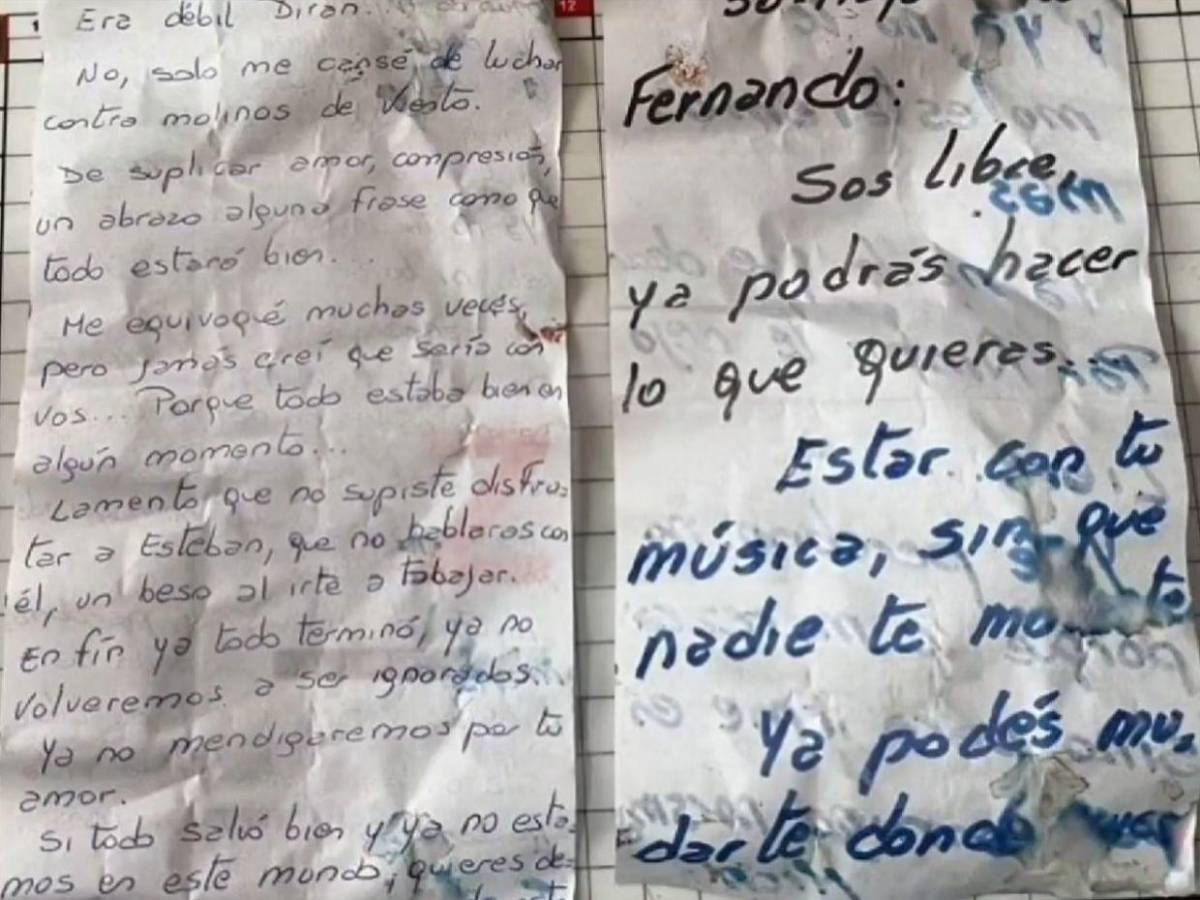 Era débil Diran...
No, solo me cansé de luchar
contra molinos de Viento.
De suplicar amor, compresión,
un abrazo alguna frase como que
todo estará bien...
Me equivoqué muchas veces,
pero jamás creí que sería con
vos... Porque todo estaba bien en
algún momento...
Lamento que no supiste disfru-
tar a Esteban, que no hablaras con
él, un beso al irte a tabajar.
En fín ya todo terminó, ya no
volveremos a ser ignorados.
Ya no mendigaremos por tu
amor.
Si todo salió bien y ya no esta-
mos en este mundo, quieres de-
12
Fernando:
Sos libre,
ya podrás hacer
lo que quieras...
Estar con tu
música, sin que
nadie te
Ya podés mu-
darte donde